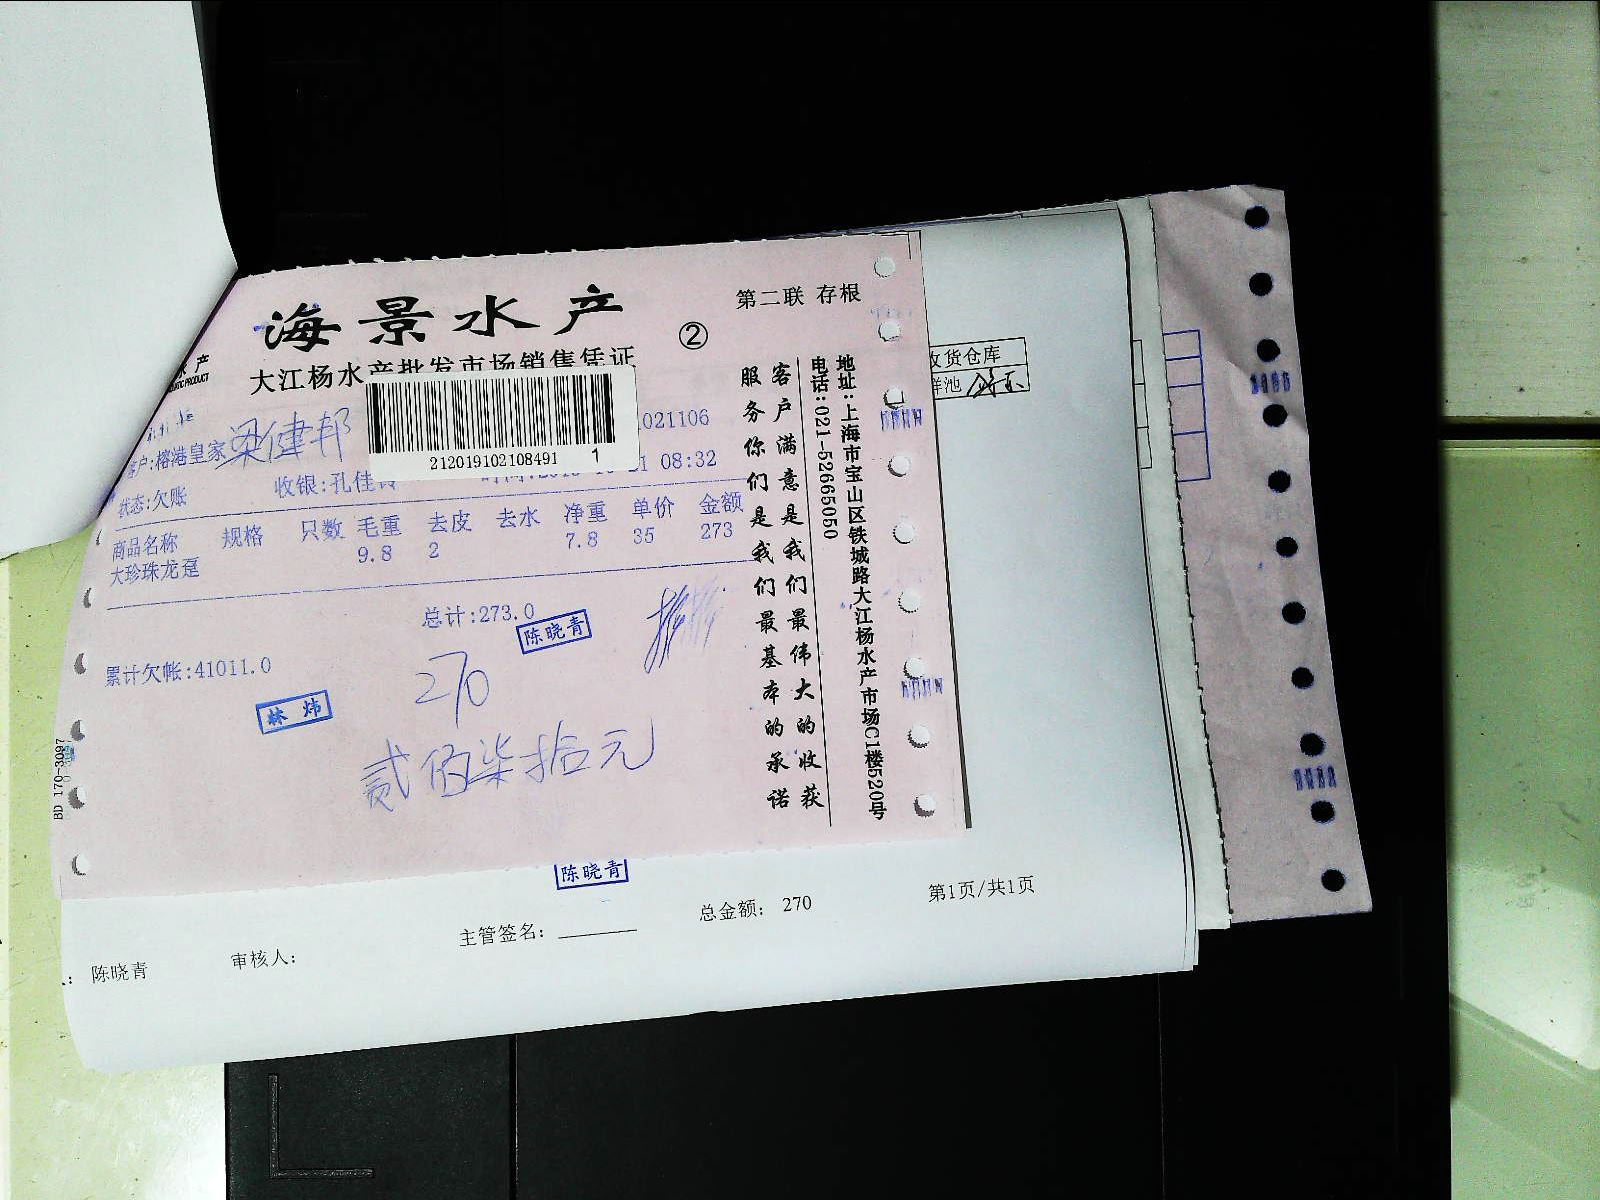 海景水产
②
第二联 存根
大江杨水产批发市场销售凭证
水产
客户:榕港皇家
梁健邦
021106
212019102108491 1
状态:欠账
收银:孔佳
1 08:32
商品名称 规格 只数 毛重 去皮 去水 净重 单价 金额
大珍珠龙趸 9.8 2 7.8 35 273
总计:273.0
陈晓青
累计欠帐:41011.0
270
林炜
贰佰柒拾元
客户满意是我们最伟大的收获
服务你们是我们最基本的承诺
地址:上海市宝山区铁城路大江杨水产市场C1楼520号
电话:021-52665050
BD 170-3097
收货仓库
鲜池
陈晓青
: 陈晓青
审核人:
主管签名:
总金额: 270
第1页/共1页